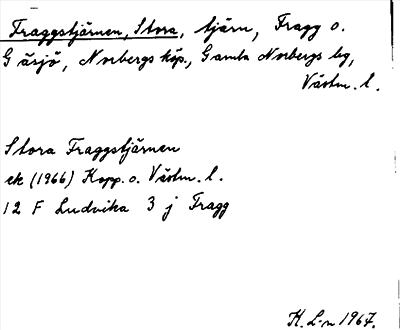 Fraggstjärnen, Stora, tjärn, Fragg o.
Gåsjö, Norbergs köp., Gamla Norbergs bg,
Västm. l.
Stora Fraggstjärnen
ek (1966) Kopp. o. Västm. l.
12 F Ludvika 3 j Fragg
K. L-n 1967.